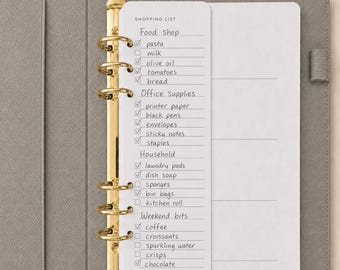 SHOPPING LIST
Food shop
pasta
milk
olive oil
tomatoes
bread
Office Supplies
printer paper
black pens
envelopes
sticky notes
staples
Household
laundry pods
dish soap
sponges
bin bags
kitchen roll
Weekend bits
coffee
croissants
sparkling water
crisps
chocolate